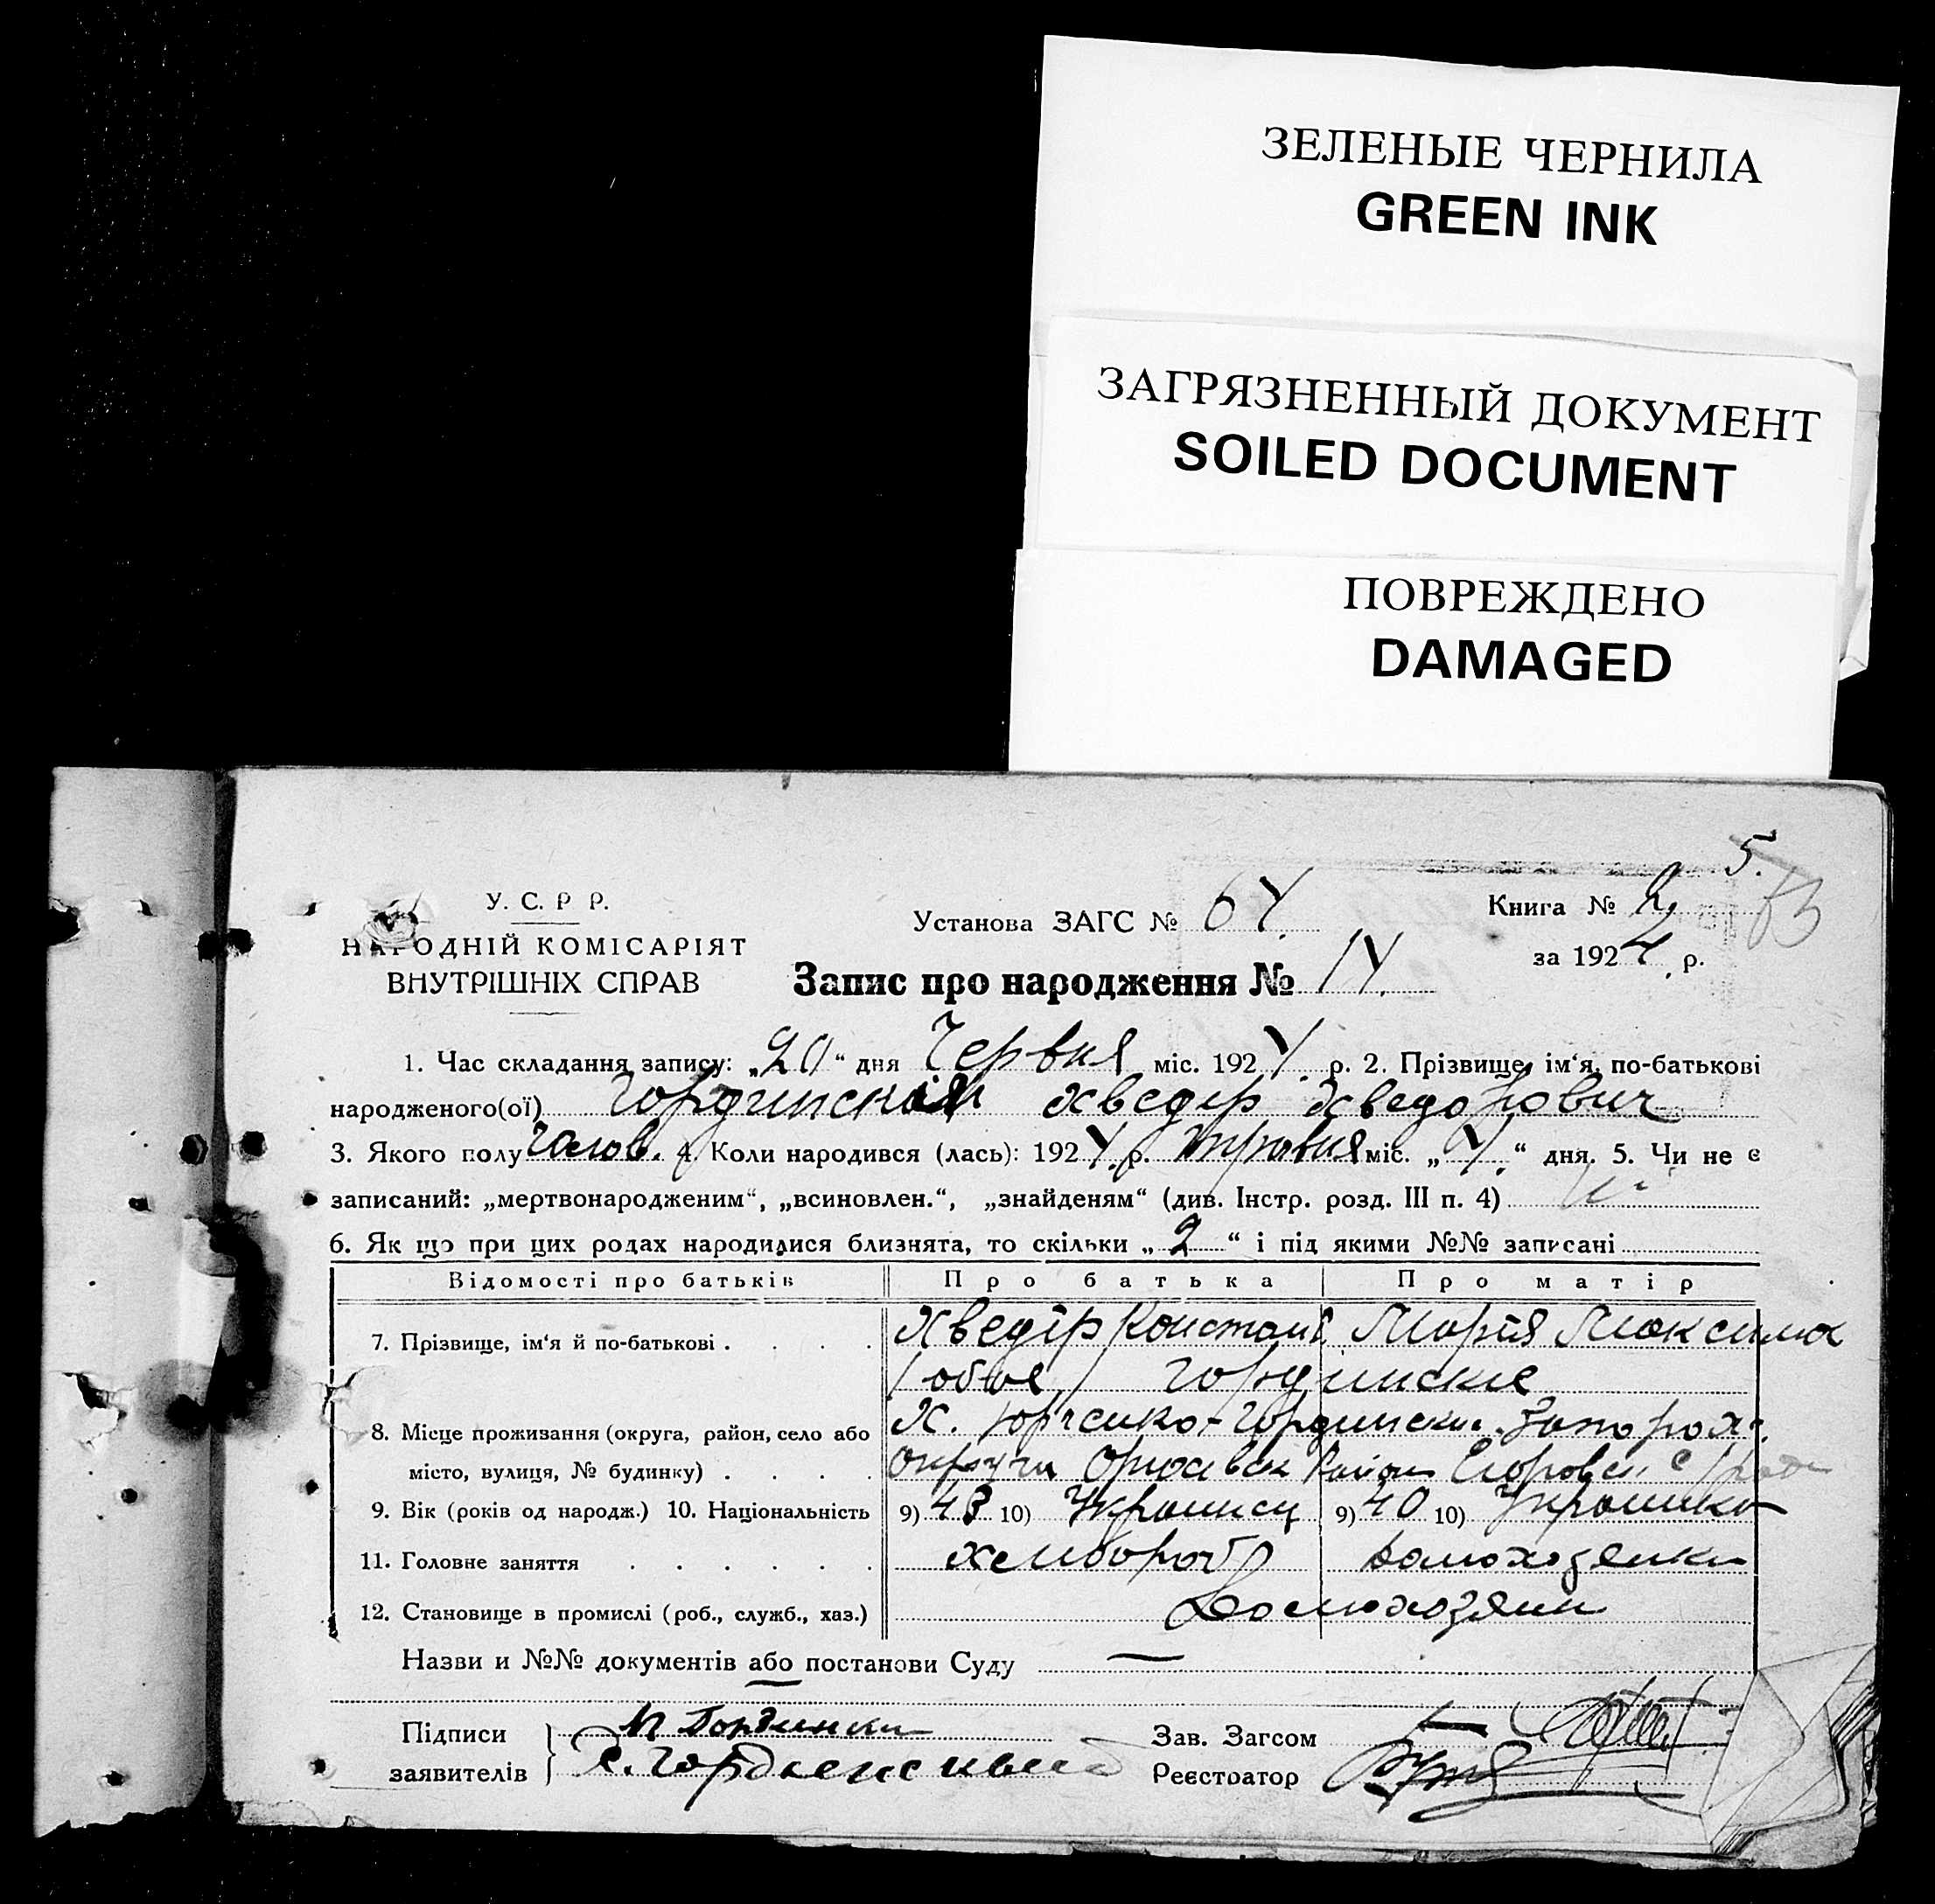 ЗЕЛЕНЫЕ ЧЕРНИЛА
GREEN INK
ЗАГРЯЗНЕННЫЙ ДОКУМЕНТ
SOILED DOCUMENT
ПОВРЕЖДЕНО
DAMAGED
5.
У. С. Р Р.
НАРОДНІЙ КОМІСАРІЯТ
ВНУТРІШНІХ СПРАВ
Установа ЗАГС № 64.
Книга № 2
за 1924 р.
Запис про народження № 14.
1. Час складання запису: „20“ дня Червня міс. 1924 р. 2. Прізвище, ім‘я, по-батькові
народженого(ої) Хведір Хведорович
3. Якого полу чолов. 4. Коли народився (лась): 1924 р. травня міс. „4“ дня. 5. Чи не є
записаний: „мертвонародженим“, „всиновлен.“, „знайденям“ (див. Інстр. розд. III п. 4)
6. Як що при цих родах народилися близнята, то скільки „2“ і під якими №№ записані
Відомості про батьків Про батька Про матір
7. Прізвище, ім‘я й по-батькові . . . . Хведір Констант. Марія Максимов
/обоє/ Гординские
8. Місце проживання (округа, район, село або Х. Юрченко-Гординськ. Запорож.
місто, вулиця, № будинку) . . . . округи Район
9. Вік (років од народж.) 10. Національність 9) 43 10) Украинец 9) 40 10) Украинка
11. Головне заняття . . . . . . хлибороб домохозяйка
12. Становище в промислі (роб., служб., хаз.) Домохозяин
Назви и №№ документів або постанови Суду —
Підписи Зав. Загсом
заявителів Реєстратор